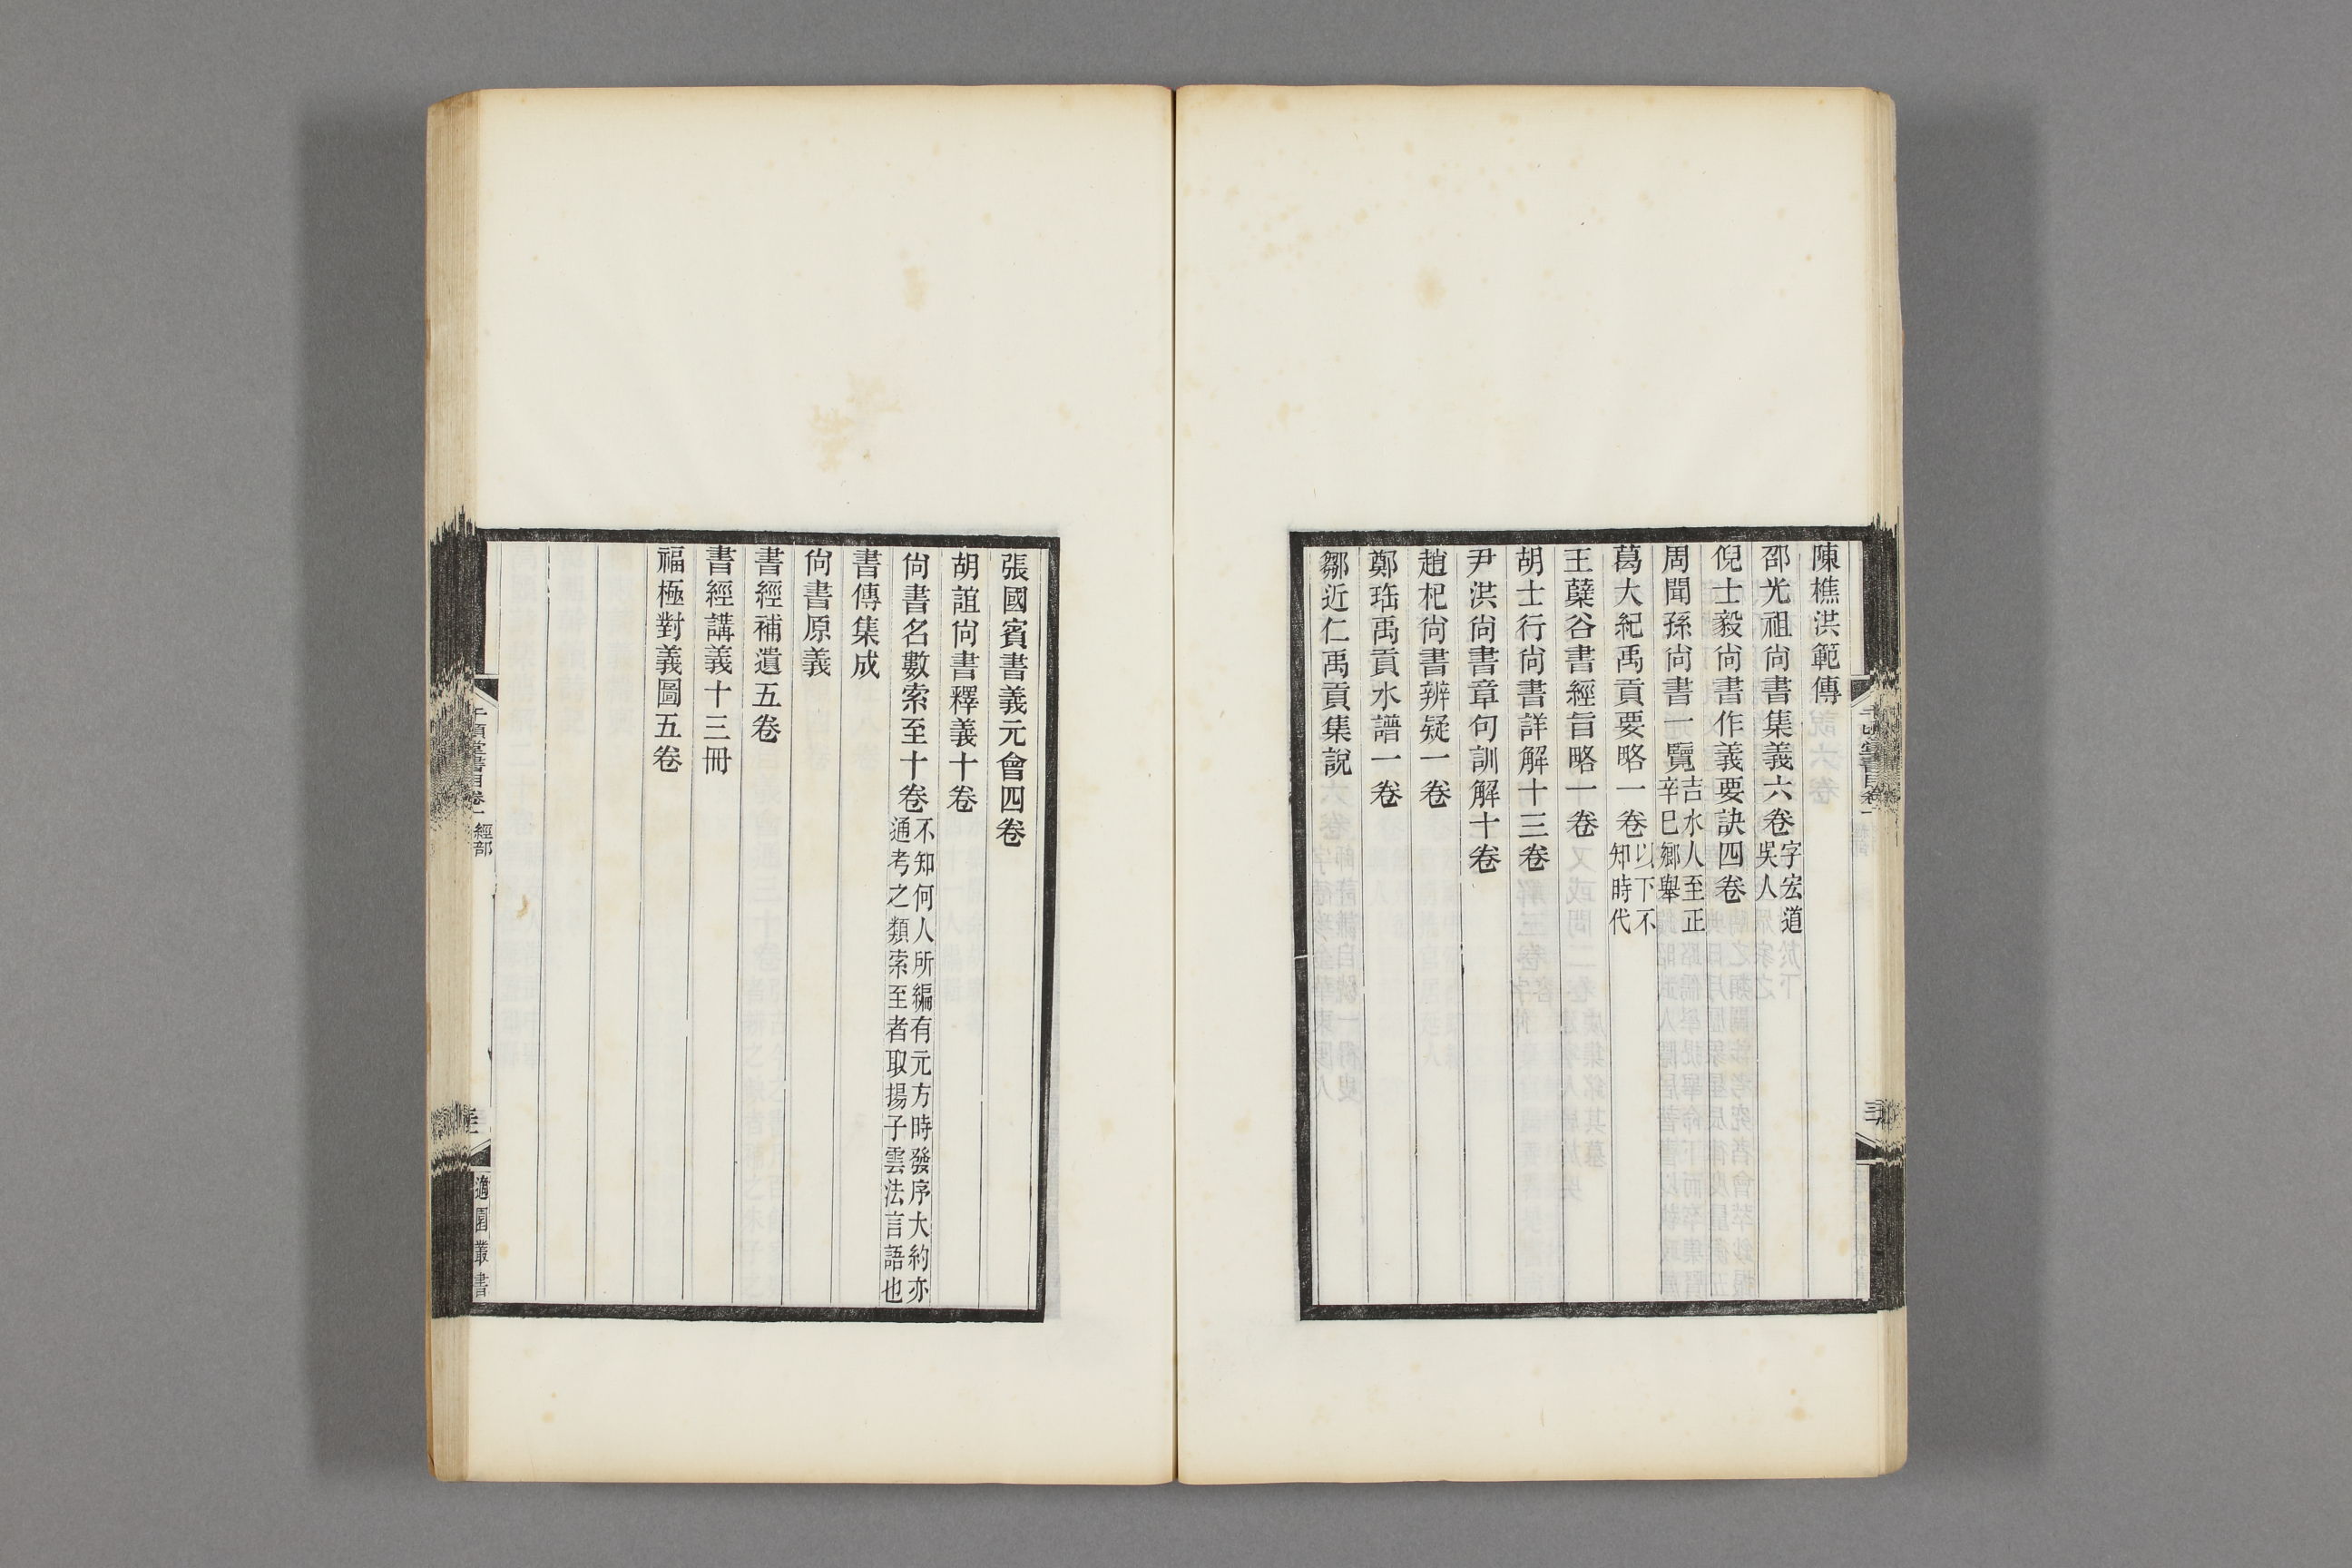 陳樵洪範傳
邵光祖尙書集義六卷字宏道吳人
倪士毅尙書作義要訣四卷
周聞孫尙書一覽吉水人至正辛巳鄉舉
葛大紀禹貢要略一卷以下不知時代
王蘖谷書經旨略一卷
胡士行尙書詳解十三卷
尹洪尙書章句訓解十卷
趙杞尙書辨疑一卷
鄭珤禹貢水譜一卷
鄒近仁禹貢集說
張國賓書義元會四卷
胡誼尙書釋義十卷
尙書名數索至十卷不知何人所編有元方時發序大約亦通考之類索至者取揚子雲法言語也
書傳集成
尙書原義
書經補遺五卷
書經講義十三冊
福極對義圖五卷
千頃堂書目卷一 經部
適園叢書